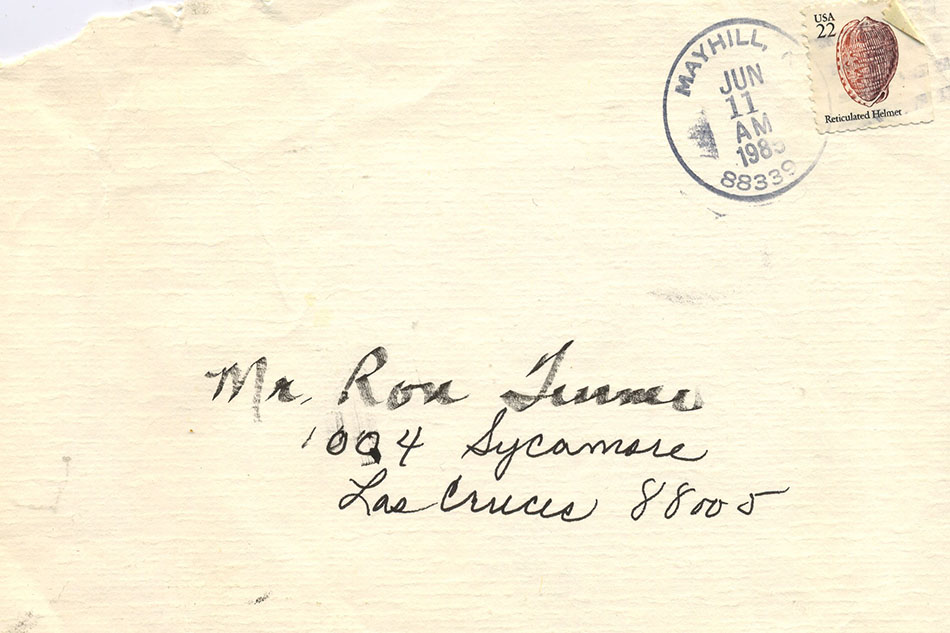 USA
22
Reticulated Helmet
MAYHILL,
JUN
11
AM
1985
88339
Mr. Ron
1004 Sycamore
Las Cruces 88005